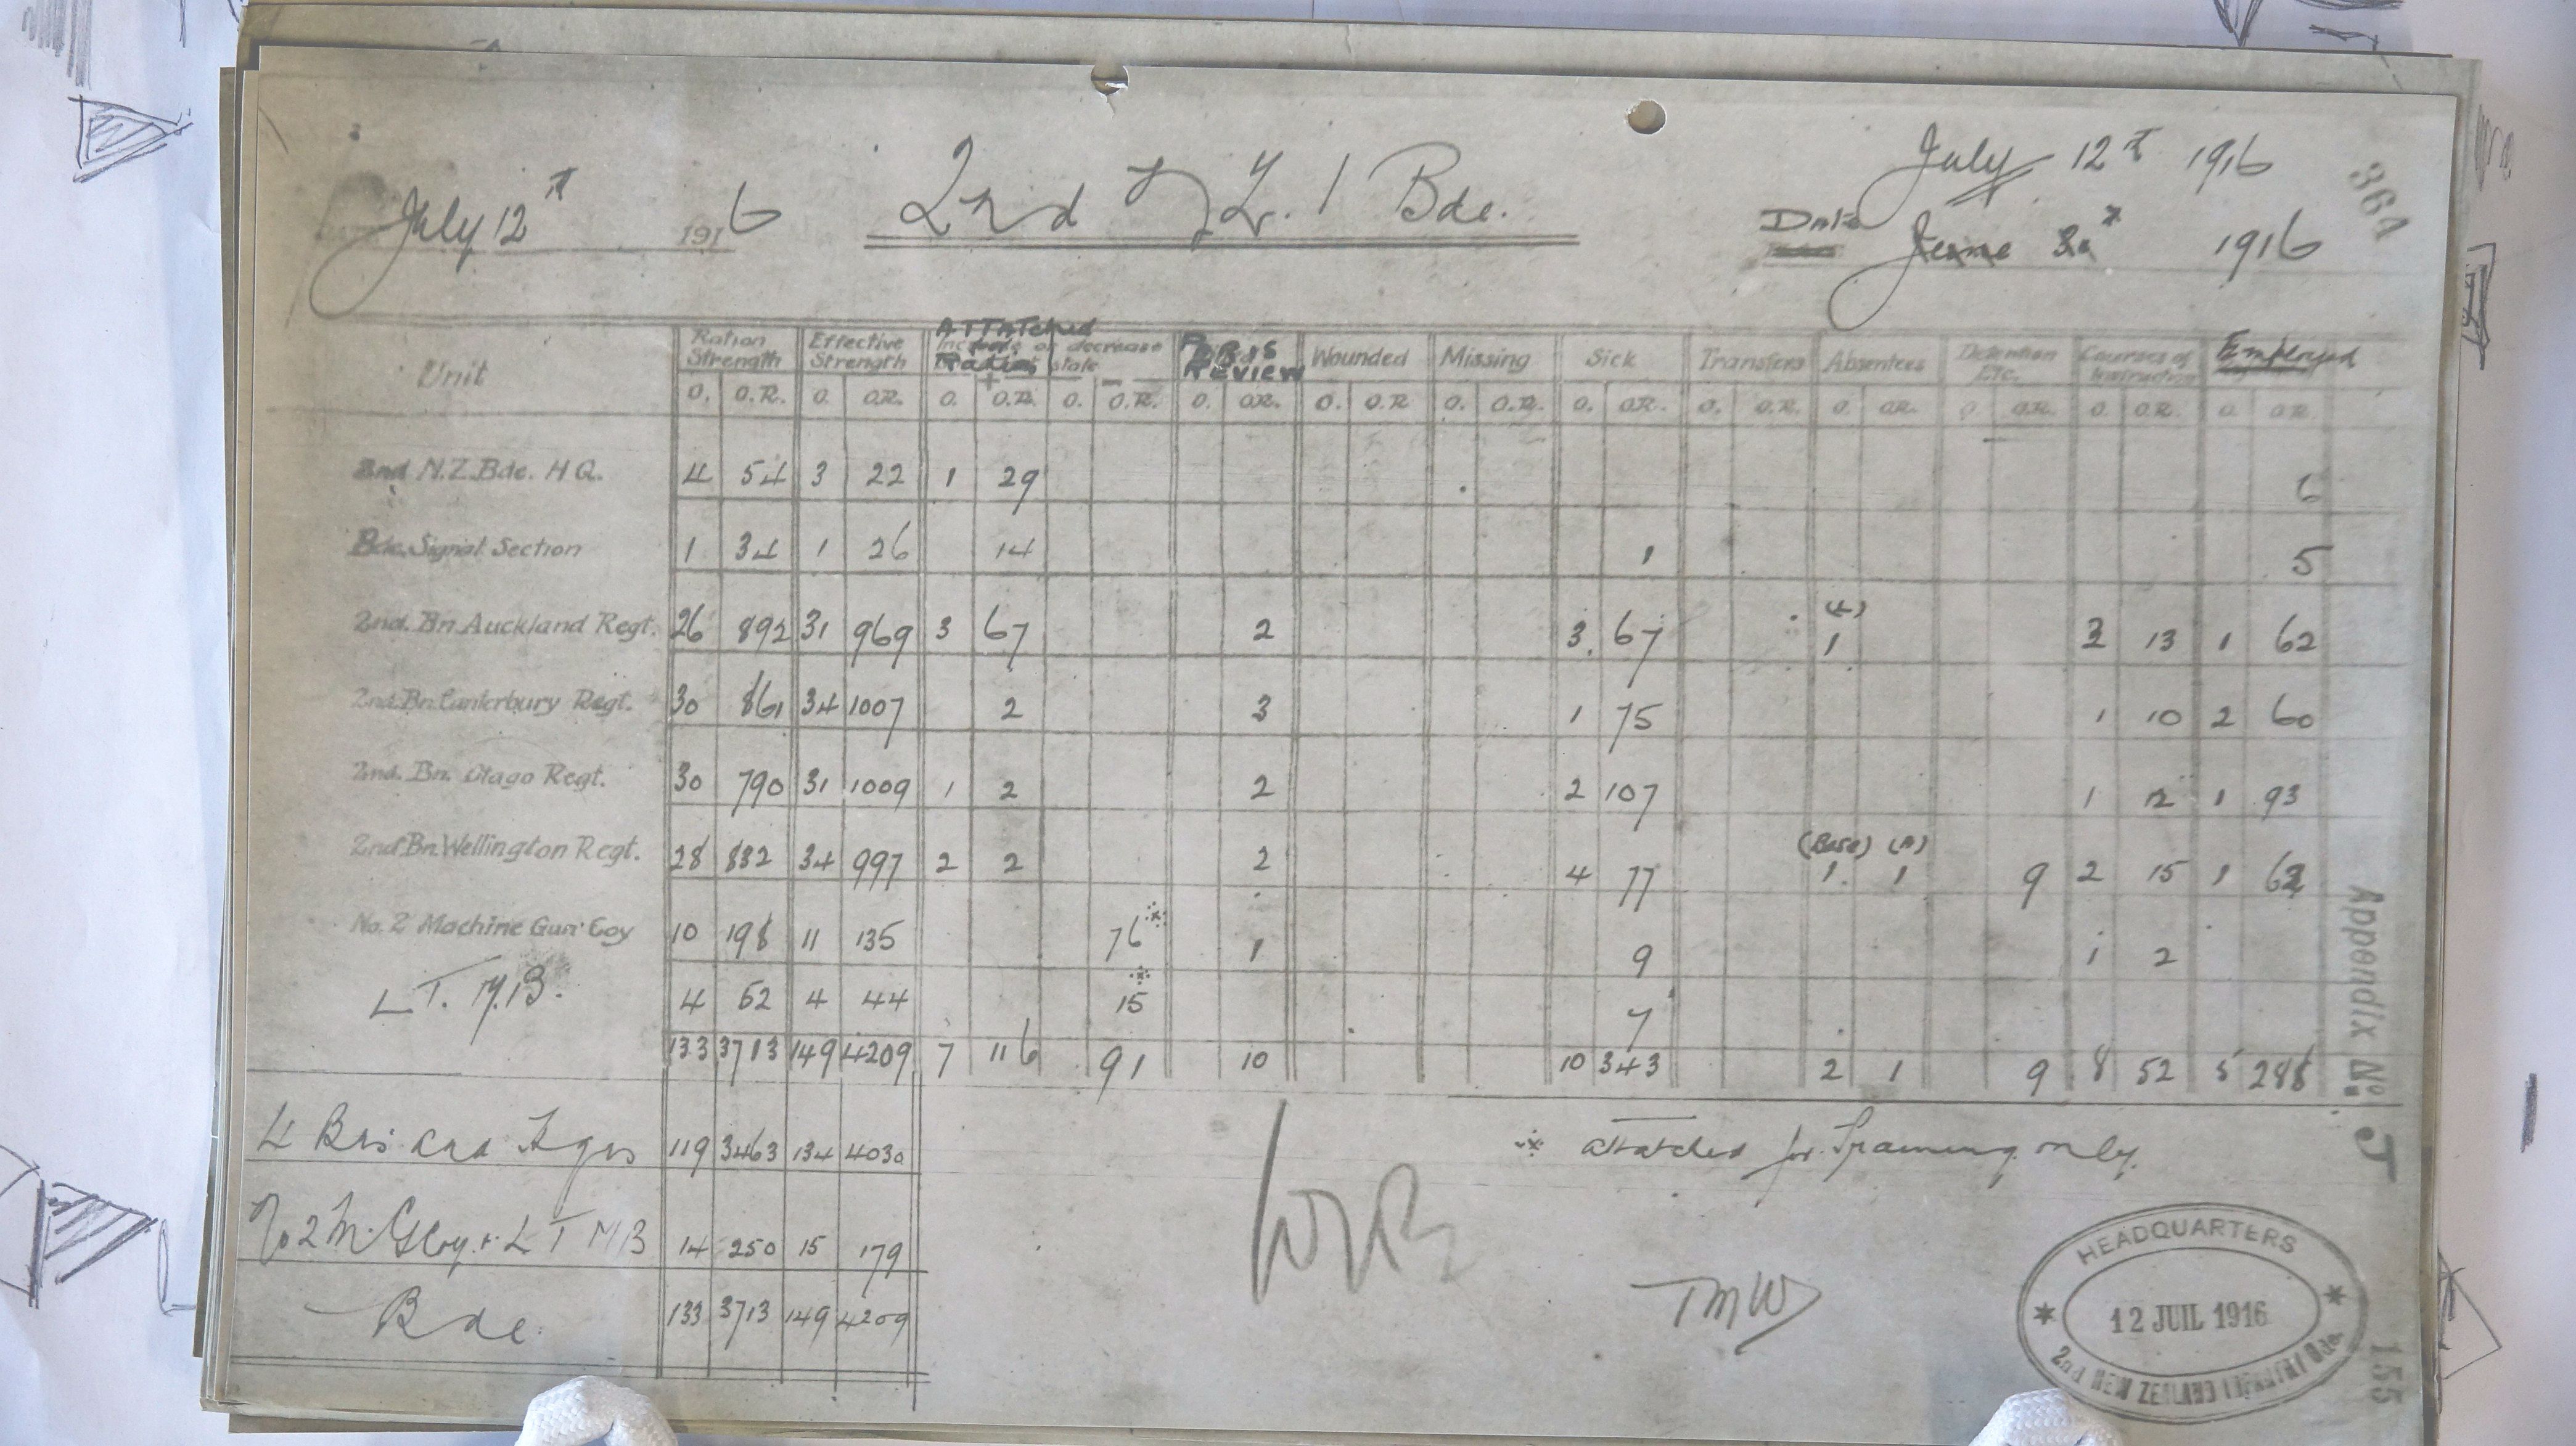 July 12th 1916
2nd N Z. I Bde.
July 12th 1916
Date June 1916
364
Unit
Ration Strength
Effective Strength
ATTAtched Ration
Increase or decrease state
+ −
P.B. REVIEW
Wounded
Missing
Sick
Transfers
Absentees
Detention Etc.
Courses of Instruction
Employed
O. O.R. O. O.R. O. O.R. O. O.R. O. O.R. O. O.R O. O.R. O. O.R. O. O.R. O. O.R. O. O.R. O. O.R. O. O.R.
2nd N.Z. Bde. H Q. 4 54 3 22 1 29 6
Bde. Signal Section 1 34 1 26 14 1 5
2nd. Bn Auckland Regt. 26 892 31 969 3 67 2 3 67 1 3 13 1 62
2nd. Bn Canterbury Regt. 30 861 34 1007 2 3 1 75 1 10 2 60
2nd. Bn. Otago Regt. 30 790 31 1009 1 2 2 2 107 1 12 1 93
(Base) (A)
2nd Bn. Wellington Regt. 28 832 34 997 2 2 2 4 77 1 1 9 2 15 1 62
No. 2 Machine Gun Coy 10 198 11 135 76※ 1 9 1 2
L T. M.B. 4 52 4 44 ※15 7
133 3713 149 4209 7 116 91 10 10 343 2 1 9 8 52 5 288
4 Bns and Hqrs 119 3463 134 4030
No 2 M. G Coy. + L T M B 14 250 15 179
Bde. 133 3713 149 4209
※ attatched for Training only.
TMW
HEADQUARTERS
12 JUIL 1916
2nd NEW ZEALAND INFANTRY Bde
Appendix No. J
155